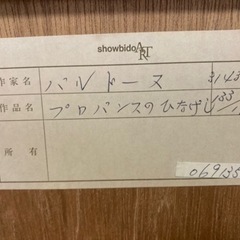 showbido ART
作家名 バルドーヌ
作品名 プロバンスのひなげし
所有
069135